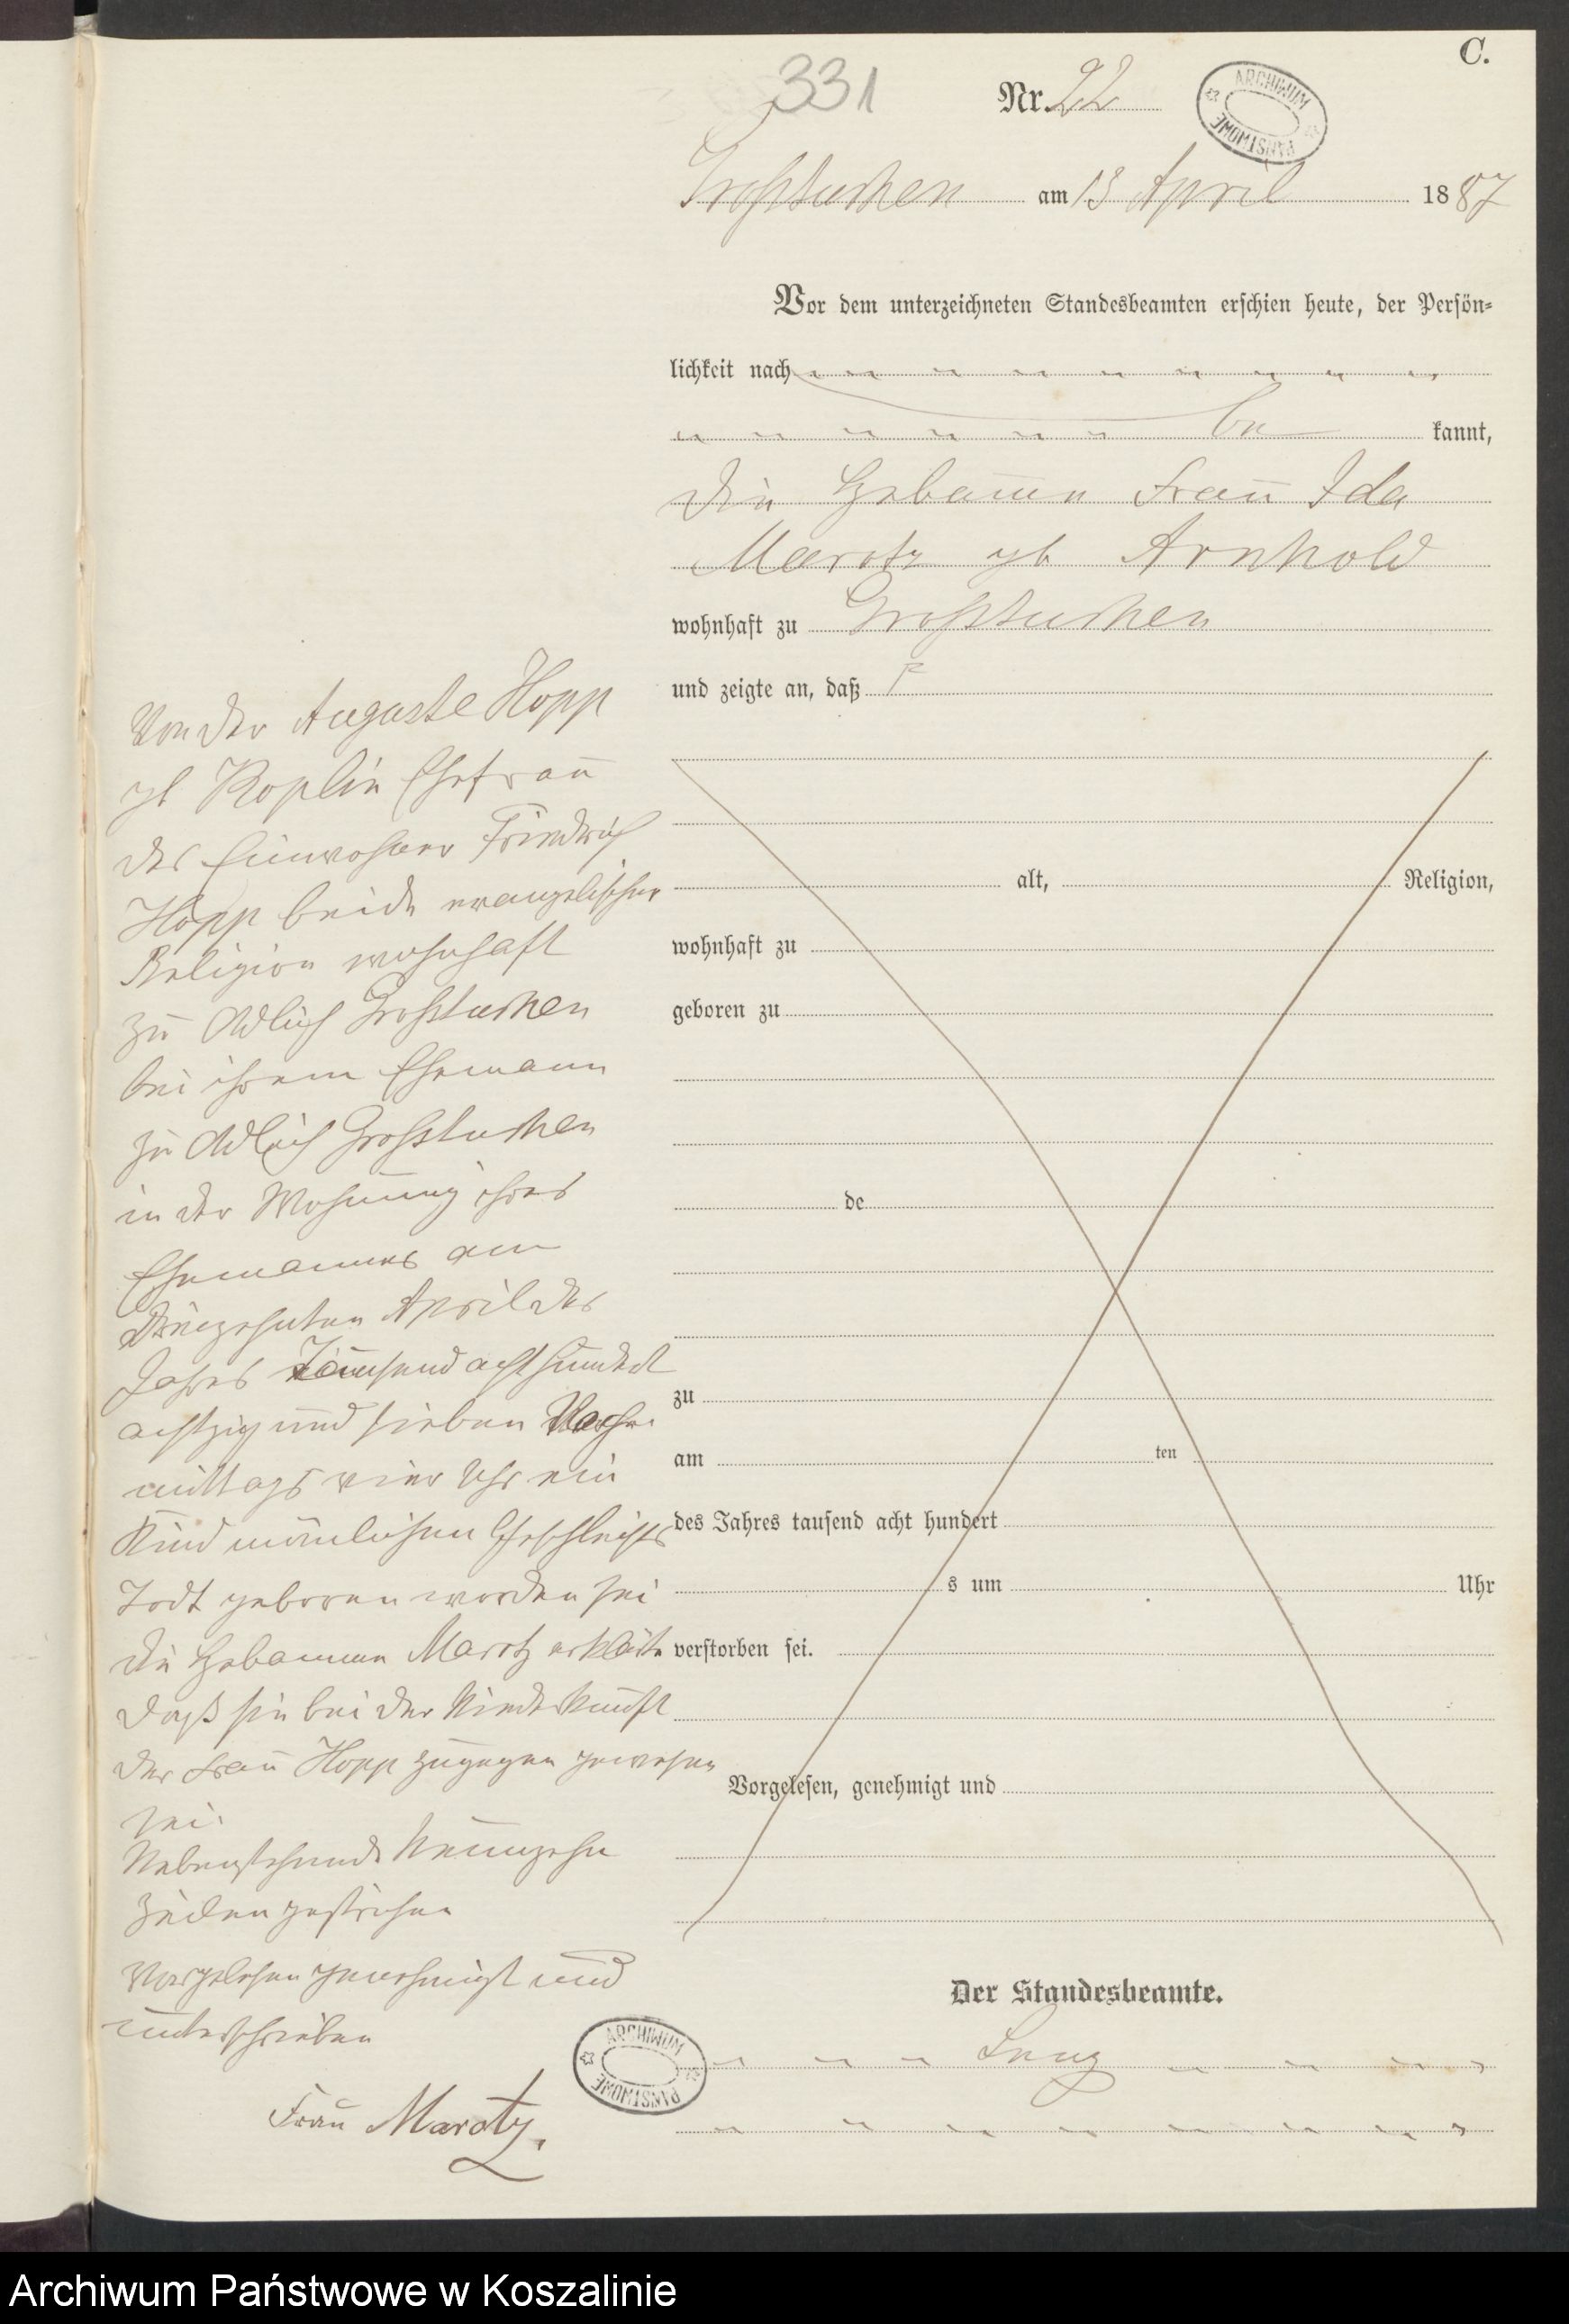 C.
331
Nr. 22
ARCHIWUM PAŃSTWOWE
Großtuchen am 13 April 1887
Vor dem unterzeichneten Standesbeamten erschien heute, der Persön-
lichkeit nach
be kannt,
die Hebamme Frau Ida
Marotz gb Arnhold
wohnhaft zu Großtuchen
und zeigte an, daß
Von der Auguste Hopp
gb Koplin Ehefrau
des Einwohner Friedrich
Hopp beide evangelischer
Religion wohnhaft
zu Adlich Großtuchen
bei ihrem Ehemann
zu Adlich Großtuchen
in der Wohnung ihres
Ehemannes am
Dreizehnten April des
Jahres Tausend acht hundert
achtzig und sieben Nach-
mittags vier Uhr ein
Kind mänlichen Geschlechts
Todt geboren worden sei
die Hebamme Marotz erklärte
daß sie bei der Niederkunft
der Frau Hopp zugegen gewesen
sei.
Nebenstehende Neunzehn
Zeilen gestrichen
Vorgelesen genehmigt und
unterschrieben
Frau Marotz.
alt, Religion,
wohnhaft zu
geboren zu
de
zu
am ten
des Jahres tausend acht hundert
s um Uhr
verstorben sei.
Vorgelesen, genehmigt und
Der Standesbeamte.
ARCHIWUM PAŃSTWOWE
Archiwum Państwowe w Koszalinie